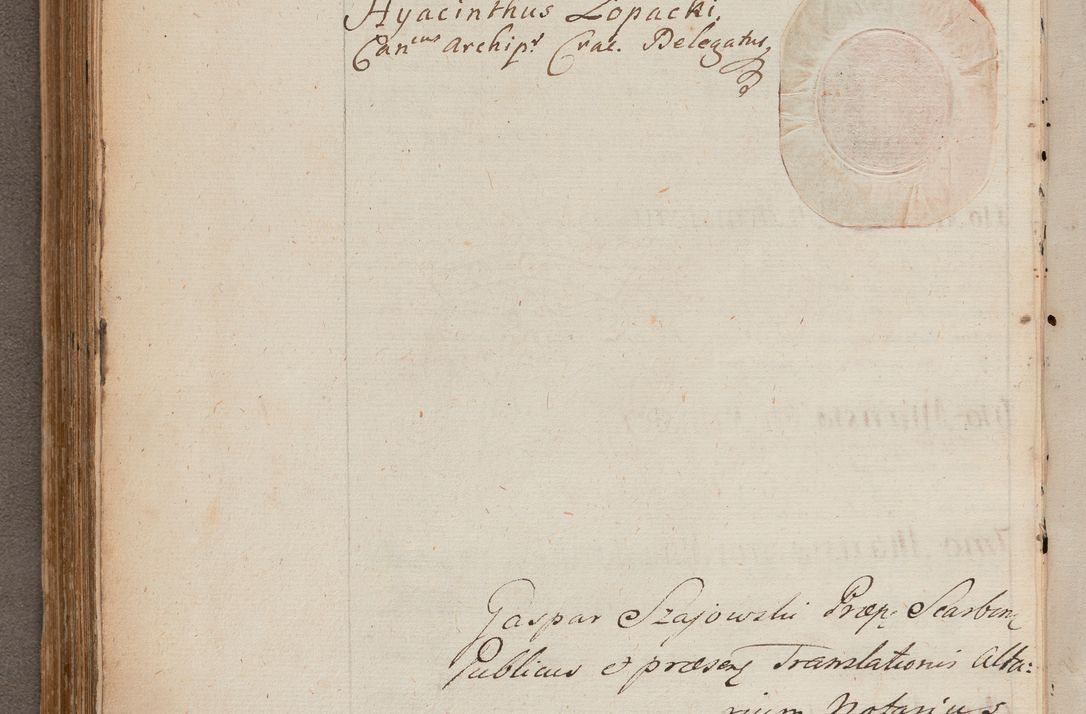 Hyacinthus Lopacki,
Can^cus archip^r Crac. Delegatus,
Gaspar Szajowski Præp. Scarbim
Publicus et præsen Translationis Alta:
rium Notarius